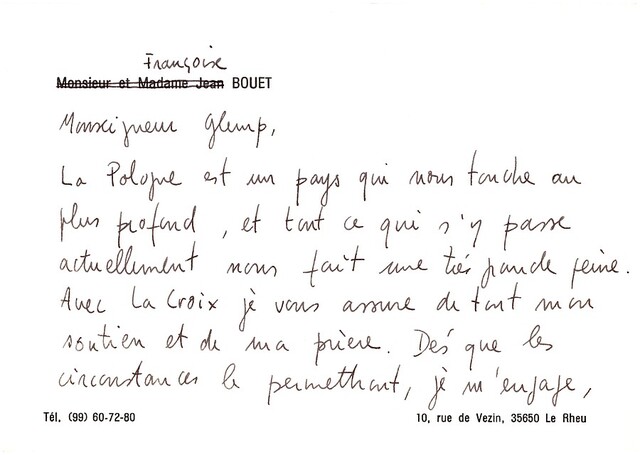 Françoise
Monsieur et Madame Jean BOUET
Monseigneur Glemp,
La Pologne est un pays qui nous touche au
plus profond, et tout ce qui s'y passe
actuellement nous fait une très grande peine.
Avec La Croix je vous assure de tout mon
soutien et de ma prière. Dès que les
circonstances le permettront, je m'engage,
Tél. (99) 60-72-80
10, rue de Vezin, 35650 Le Rheu